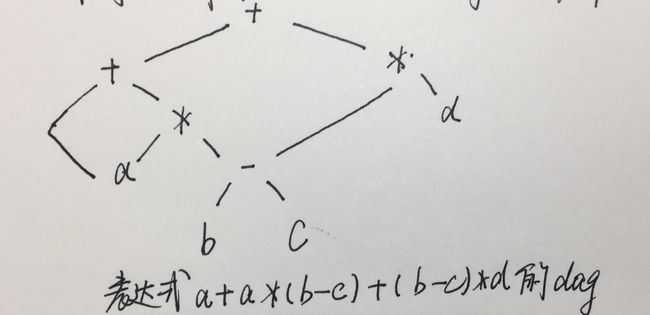 +
+ *
* d
a -
b c
表达式 a+a*(b-c)+(b-c)*d 的dag